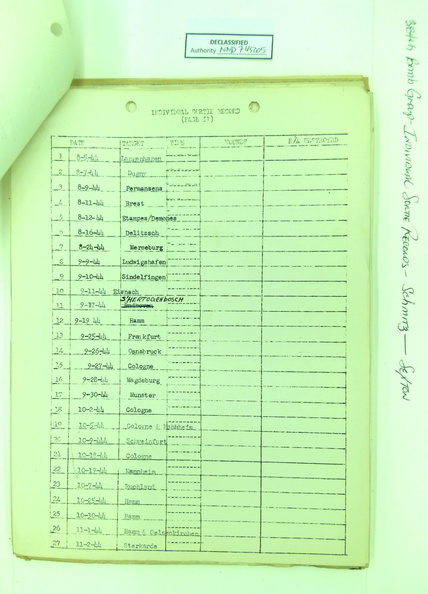 DECLASSIFIED
Authority NND 745005
384th Bomb Group - Individual Sortie Records - Schmitz — Sexton
INDIVIDUAL SORTIE RECORD
(PAGE II)
DATE TARGET TIME
1 8-5-44 Langenhagen
2 8-7-44 Dugny
3 8-9-44 Permansens
4 8-11-44 Brest
5 8-12-44 Etampes/Demones
6 8-16-44 Delitzsch
7 8-24-44 Merseburg
8 9-9-44 Ludwigshafen
9 9-10-44 Sindelfingen
10 9-11-44 Eisnach
11 9-17-44 S'HERTOGENBOSCH
12 9-19-44 Hamm
13 9-25-44 Frankfurt
14 9-26-44 Osnabruck
15 9-27-44 Cologne
16 9-28-44 Magdeburg
17 9-30-44 Munster
18 10-2-44 Cologne
19 10-5-44 Cologne &
20 10-9-44 Schweinfurt
21 10-18-44 Cologne
22 10-19-44 Mannheim
23 10-7-44
24 10-26-44 Hamm
25 10-30-44 Hamm
26 11-1-44 Hamm & Gelsenkirchen
27 11-2-44 Sterkarde